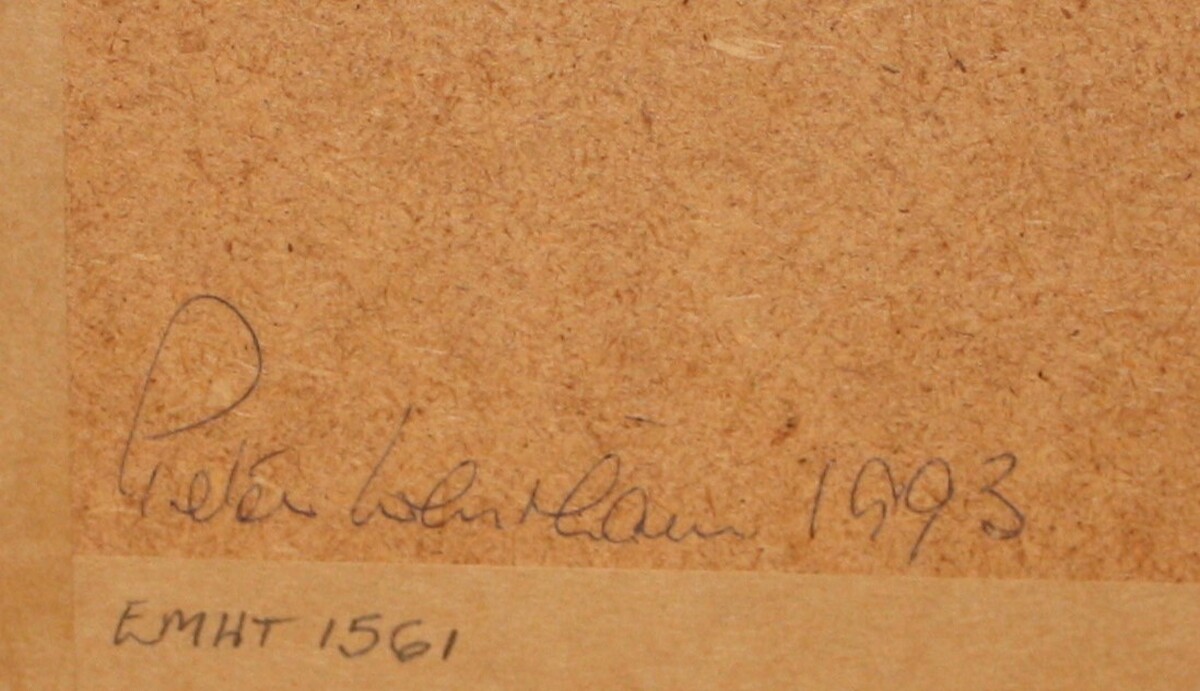 Peter 1993
EMHT 1561